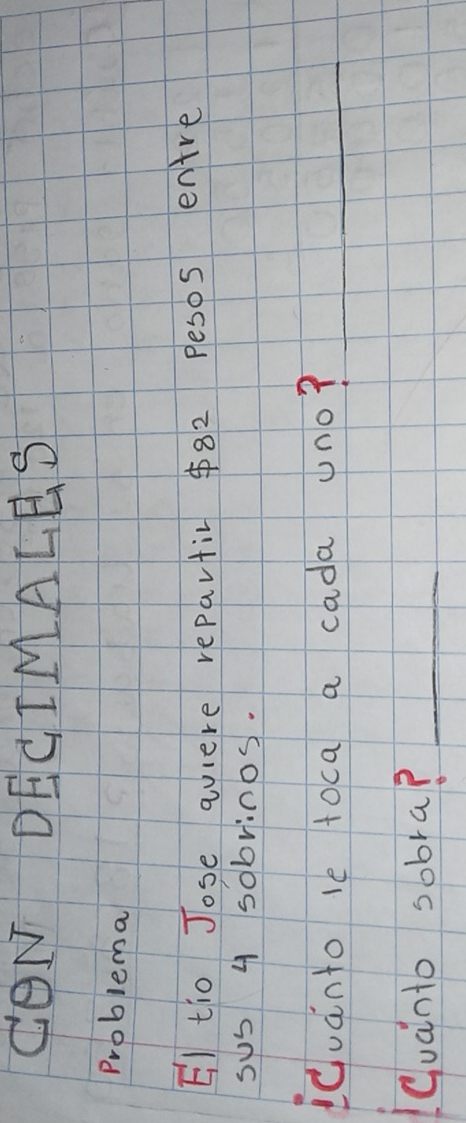 CON DECIMALES
Problema
El tío José quiere repartir $82 pesos entre
sus 4 sobrinos.
¿Cuánto le toca a cada uno?
¿Cuánto sobra?